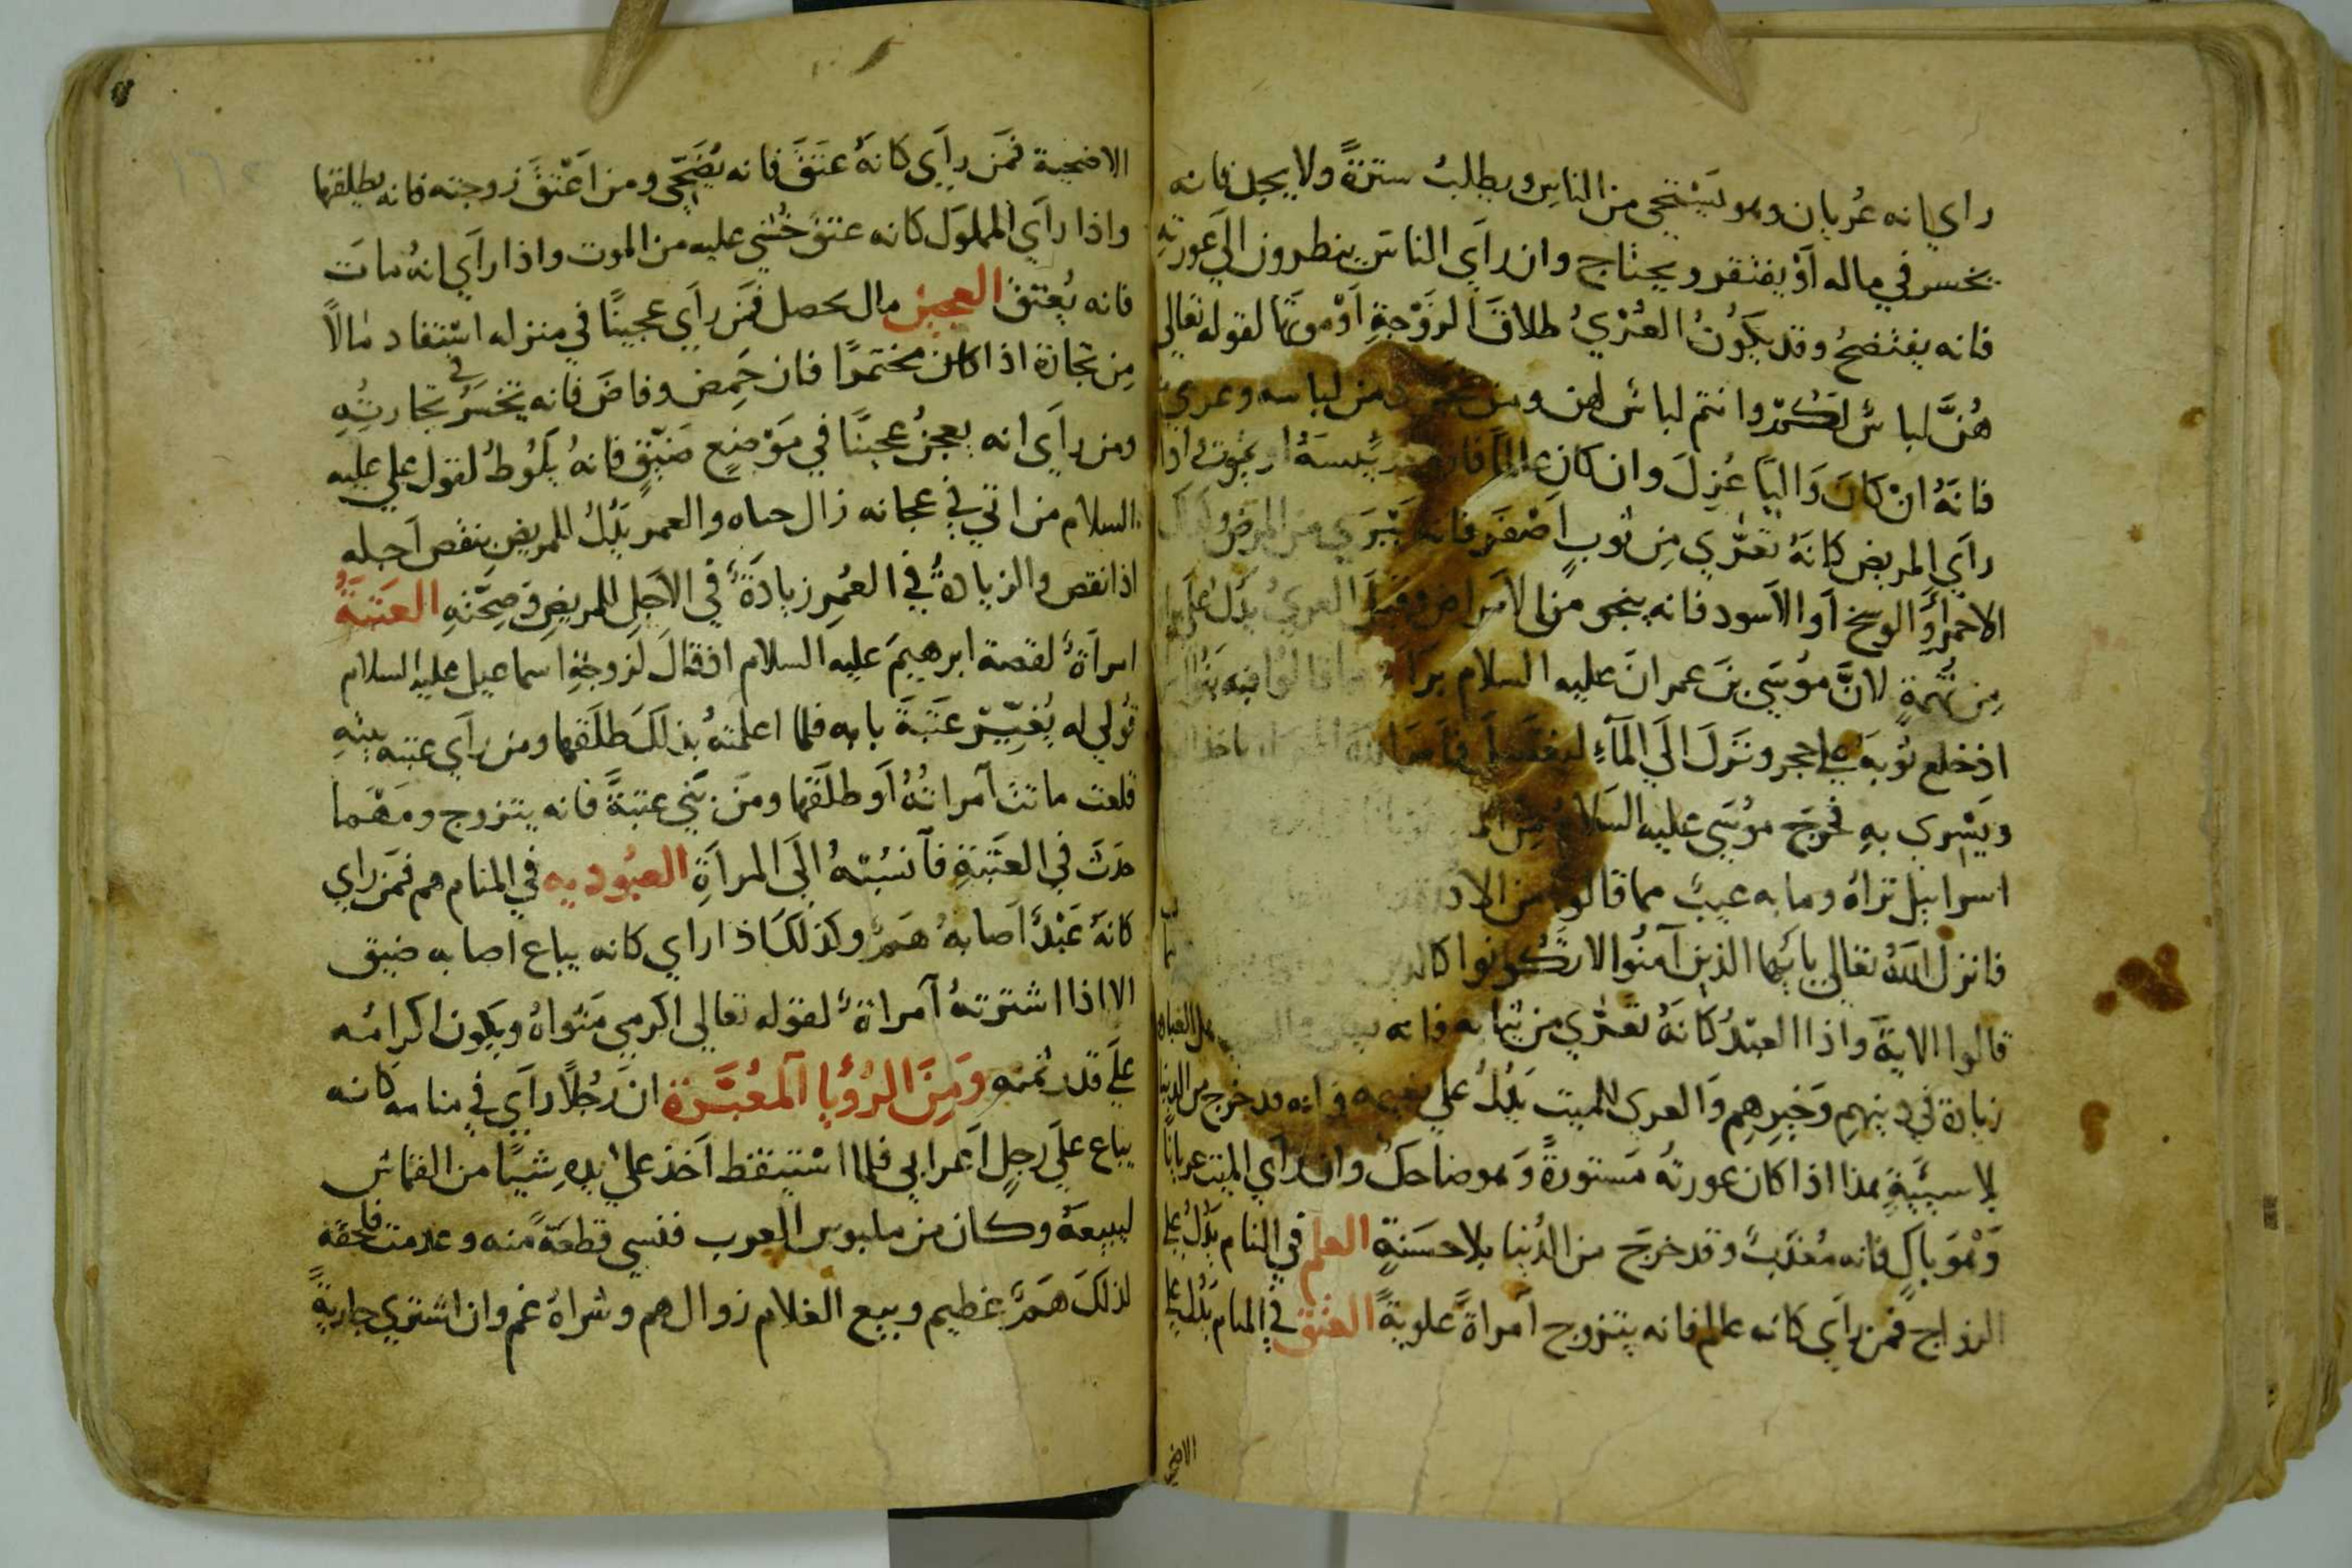 راي انه عُريان وهو يَسْتحي من الناسِ ويطلبُ سترةً ولا يجد فانه
يخسر في ماله اَوْ يفتقر ويحتاج وان رأي الناسَ ينظرون الي عورتهِ
فانه يفتضحُ وقد يكَونُ العُرْيُ طلاقَ الزوْجةِ اَوْ موتها لقوله تعالي
هُنَّ لباسٌ لكُم وانتم لباسٌ لهن ومن من لباسه وعري
فانهُ انْ كانَ وَاليًا عُزِلَ وان كان او يموتُ اذا
رأي المريض كانهُ تَعَرّي مِن ثوبٍ اَصْفَر فانه يَبْرَي من المرض وكذلك
الاحمرُ اَو الوسخ اَو الاَسود فانه ينجو من الامراض وقيلَ العريُ يدل علي
مِن تُهْمةٍ لانَّ موُسَي بنَ عمرانَ عليه السلام برَاه مما قالوا فيه بَنُوا
اذ خلع ثوبَهُ علي حجر ونَزلَ الَي المَآءِ ليغتسل
ويَسْري بهِ فخرجَ موُسَي عليه السَلام
اسرائيل تراهُ وما به عيبٌ مما قالوا من الا
فانزل اللهُ تعالي يا ايُها الذين آمنُوا لا تكُونوا كالذين
قالوا الايةَ واذا العبْدُ كانهُ تَعَرّي من ثيابه فانه
زيادة في دينهِم وَخَيرِهِم وَالعري للميت يَدُلُ علي نعيمه وانه قد خرج من الدنيا
بلا سيئَةٍ هذا اذا كان عورتهُ مَستورةً وَهو ضاحك وان راَي الميت عريانًا
وَهْوَ باكٍ فانه مُعَذبٌ وقد خرجَ من الدُنيا بلا حسَنةٍ العلم في المنام يَدُلُ علي
الزواج فمن راَي كانه عالم فانه يتزوج اَمراةً علويةً العتق في المنام يَدُلُ علي
الاضحيـ
الاضحية فمَن راَي كانهُ عتَقَ فانه يُضَحّي ومن اَعْتَقَ زوجته فانه يطلقها
واذا راَي المملوَك كانه عتقَ خُشي عليه من الموت واذا راَي انهُ ماتَ
فانه يُعْتقُ العجين مال يحصل فمَن راَي عجينًا في منزله استفاد مالاً
مِن تجارة اذا كان مختمرًا فان حَمِض وفاضَ فانه يَخسَرُ في تجارتِهِ
ومن راَي انه يعجنُ عجينًا في مَوْضعٍ ضَيّقٍ فانهُ يلوُطُ لقول علي عليه
السلام من اتي في عجانه زال حياه والعمر يَدُلُ للمريضِ بنقص اَجله
اذا نقص والزيادةُ في العُمرِ زيادَةٌ في الاَجلِ للمريضِ وَصِحّتهِ العَتبَةُ
امراَةٌ لقصة ابرهيمَ عليه السلام اذ قالَ لزوجةِ اسماعيل عليه السلام
قُولي له يُغيّرْ عَتبَةَ بابه فلما اعلمتهُ بذلكَ طلَقها ومن راَي عتبه بيتهِ
قلعت ماتت اَمراتهُ اَو طلَقها ومنَ بَني عتبَةً فانه يتزوج ومَهْما
حدَثَ في العتَبَةِ فاَنسُبْهُ الَي المراَةِ العبُوديه في المنام هم فمَن راي
كانهُ عَبْدٌ اَصابهُ هَمٌ وكذلكَ اذا راي كانه يباع اصابه ضيق
الا اذا اشترتهُ اَمراةٌ لقوله تعالي اكرمي مَثواهُ ويكون اكرامُه
علَي قدر ثمنه وَمِنَ الرُؤيا اَلمعُبَّرة انَ رَجُلاً راَي في منامه كانه
يباع علَي رَجلٍ اَعرابي فلما اسْتيقظ اَخذ علي يدهِ شيًا من القماش
ليبيعهُ وكان من ملبوس العرب فنسي قطعَةً منه وعدمت فلحقه
لذلكَ هَمٌ عَظيم وبيع الغلام زوال هم وشراهُ غم وان اشتري جاريةً